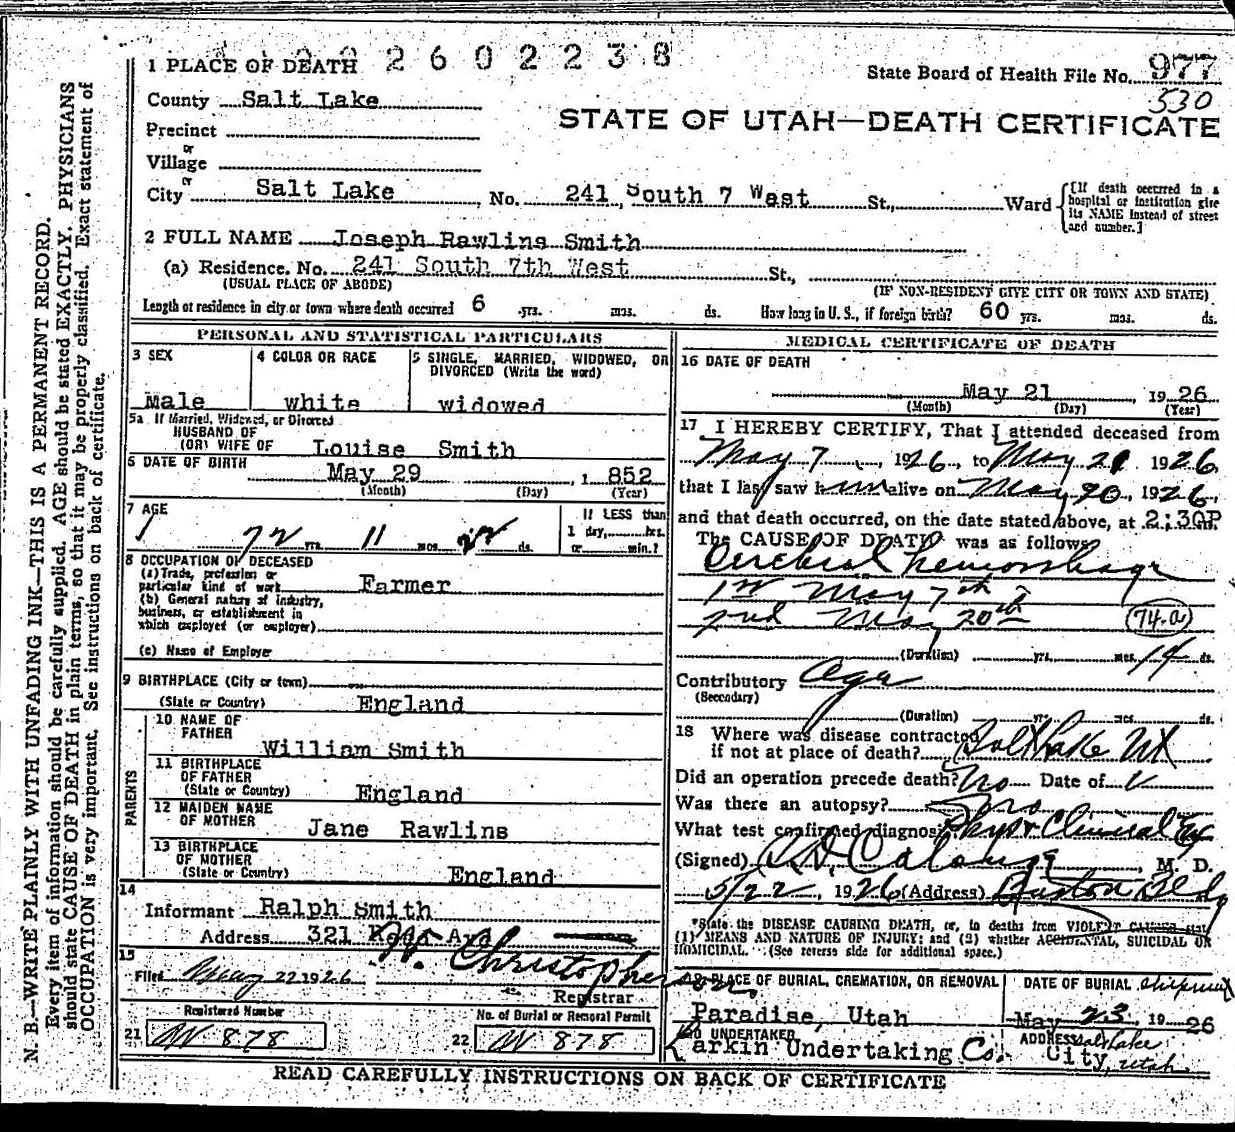 2602238
1 PLACE OF DEATH
State Board of Health File No. 977
530
County Salt Lake
STATE OF UTAH—DEATH CERTIFICATE
Precinct
or
Village
or
City Salt Lake No. 241 South 7 West St., Ward
[If death occurred in a hospital or institution give its NAME instead of street and number.]
2 FULL NAME Joseph Rawlins Smith
(a) Residence. No. 241 South 7th West St.,
(USUAL PLACE OF ABODE) (IF NON-RESIDENT GIVE CITY OR TOWN AND STATE)
Length of residence in city or town where death occurred 6 yrs. mos. ds. How long in U. S., if foreign birth? 60 yrs. mos. ds.
PERSONAL AND STATISTICAL PARTICULARS
3 SEX
Male
4 COLOR OR RACE
white
5 SINGLE, MARRIED, WIDOWED, OR
DIVORCED (Write the word)
widowed
5a If Married, Widowed, or Divorced
HUSBAND OF
(OR) WIFE OF Louise Smith
6 DATE OF BIRTH May 29, 1 852
(Month) (Day) (Year)
7 AGE
72 yrs. 11 mos. 22 ds.
If LESS than
1 day, hrs.
or min.?
8 OCCUPATION OF DECEASED
(a) Trade, profession or
particular kind of work Farmer
(b) General nature of industry,
business, or establishment in
which employed (or employer)
(c) Name of Employer
9 BIRTHPLACE (City or town)
(State or Country) England
PARENTS
10 NAME OF
FATHER
William Smith
11 BIRTHPLACE
OF FATHER
(State or Country) England
12 MAIDEN NAME
OF MOTHER Jane Rawlins
13 BIRTHPLACE
OF MOTHER
(State or Country) England
14
Informant Ralph Smith
Address 321
15
Filed May 22 1926 W. Christopherson
Registrar
Registered Number
21 W 878
No. of Burial or Removal Permit
22 W 878
MEDICAL CERTIFICATE OF DEATH
16 DATE OF DEATH
May 21, 1926
(Month) (Day) (Year)
17 I HEREBY CERTIFY, That I attended deceased from
May 7, 1926, to May 21 1926,
that I last saw him alive on May 20, 1926,
and that death occurred, on the date stated above, at 2:30P m.
The CAUSE OF DEATH was as follows
Cerebral hemorrhage
1st May 7th
2nd May 20th 74-a
(Duration) yrs. mos. 14 ds.
Contributory Age
(Secondary)
(Duration) yrs. mos. ds.
18 Where was disease contracted
if not at place of death? Salt Lake Ut
Did an operation precede death? No Date of
Was there an autopsy? No
What test confirmed diagnosis Phys & Clinical Ex
(Signed) M. D.
5/22, 1926 (Address) Bldg
*State the DISEASE CAUSING DEATH, or, in deaths from VIOLENT CAUSES state
(1) MEANS AND NATURE OF INJURY; and (2) whether ACCIDENTAL, SUICIDAL OR
HOMICIDAL. (See reverse side for additional space.)
19 PLACE OF BURIAL, CREMATION, OR REMOVAL
Paradise, Utah
DATE OF BURIAL shipment
May 23, 1926
20 UNDERTAKER
Larkin Undertaking Co.
ADDRESS Salt Lake
City, Utah
READ CAREFULLY INSTRUCTIONS ON BACK OF CERTIFICATE
N. B.—WRITE PLAINLY WITH UNFADING INK—THIS IS A PERMANENT RECORD.
Every item of information should be carefully supplied. AGE should be stated EXACTLY. PHYSICIANS
should state CAUSE OF DEATH in plain terms, so that it may be properly classified. Exact statement of
OCCUPATION is very important. See instructions on back of certificate.